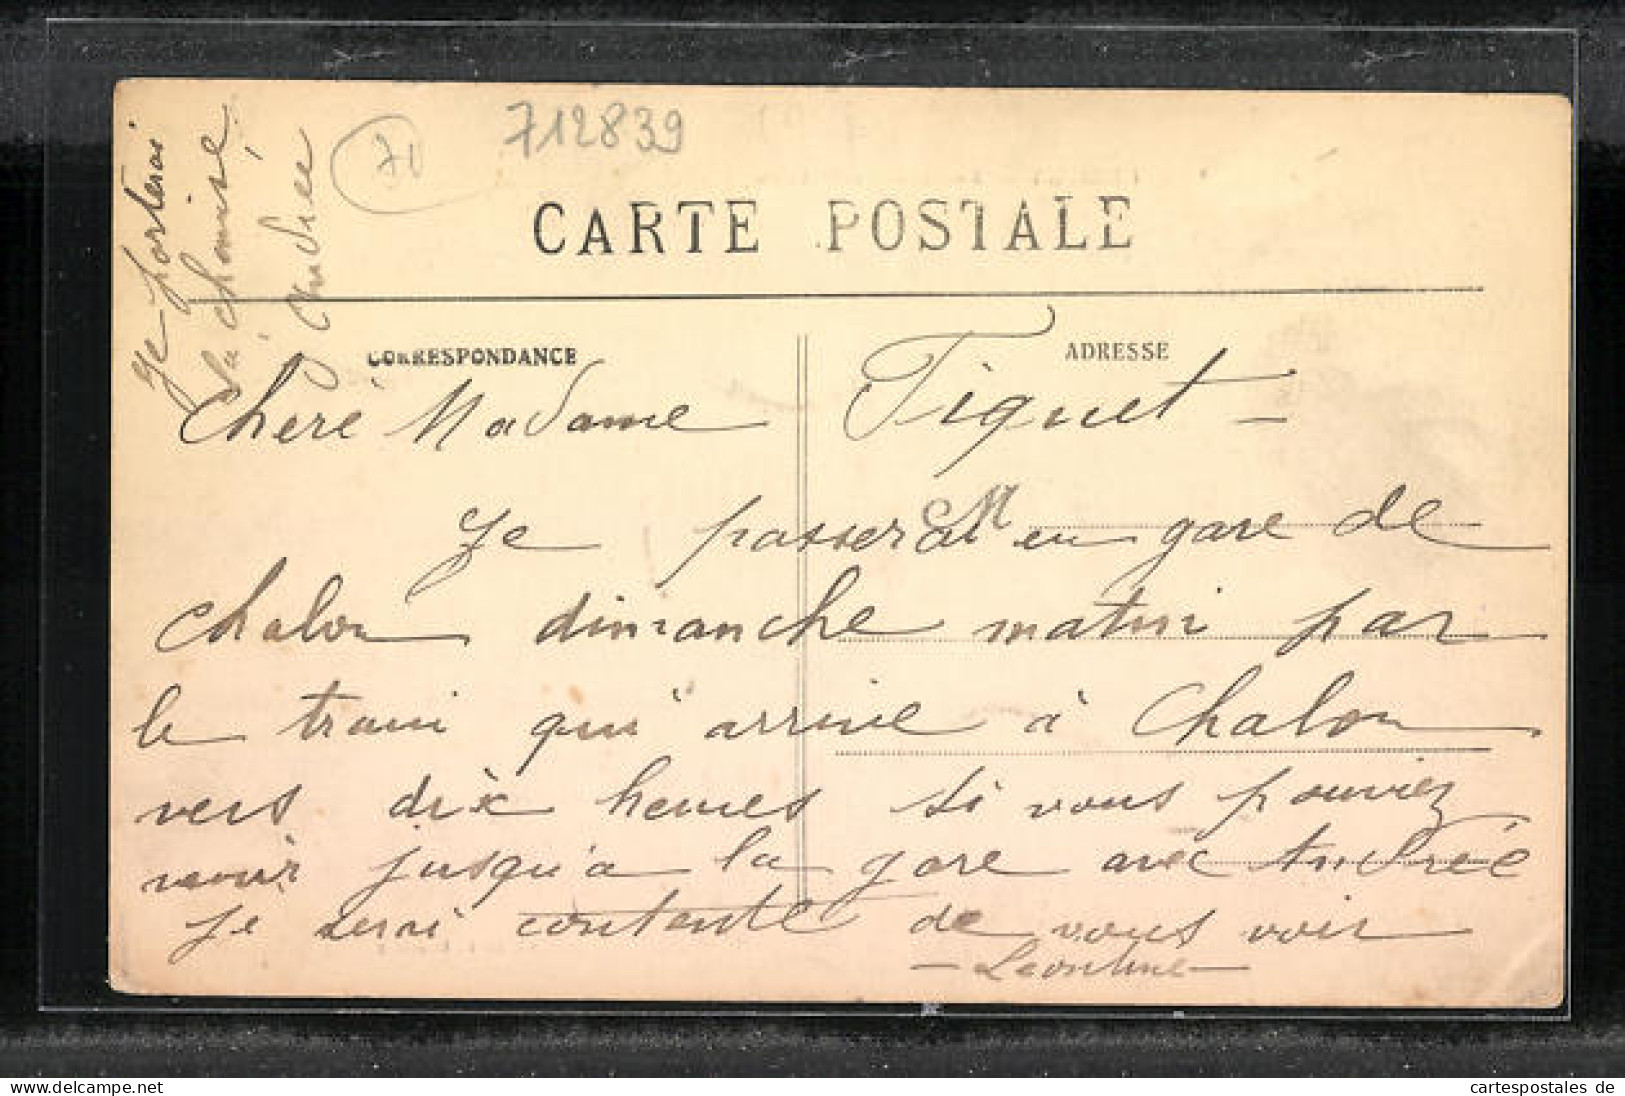 712839
71
CARTE POSTALE
CORRESPONDANCE
ADRESSE
Je porterai
la chemise
d'Andrée
Cheré Madame Tiquet
Je passerai en gare de
Chalon dimanche matin par
le train qui arrive à Chalon
vers dix heures si vous pouviez
venir jusqu'a la gare avec Andrée
je serai contente de vous voir
Leontine
cartespostales de